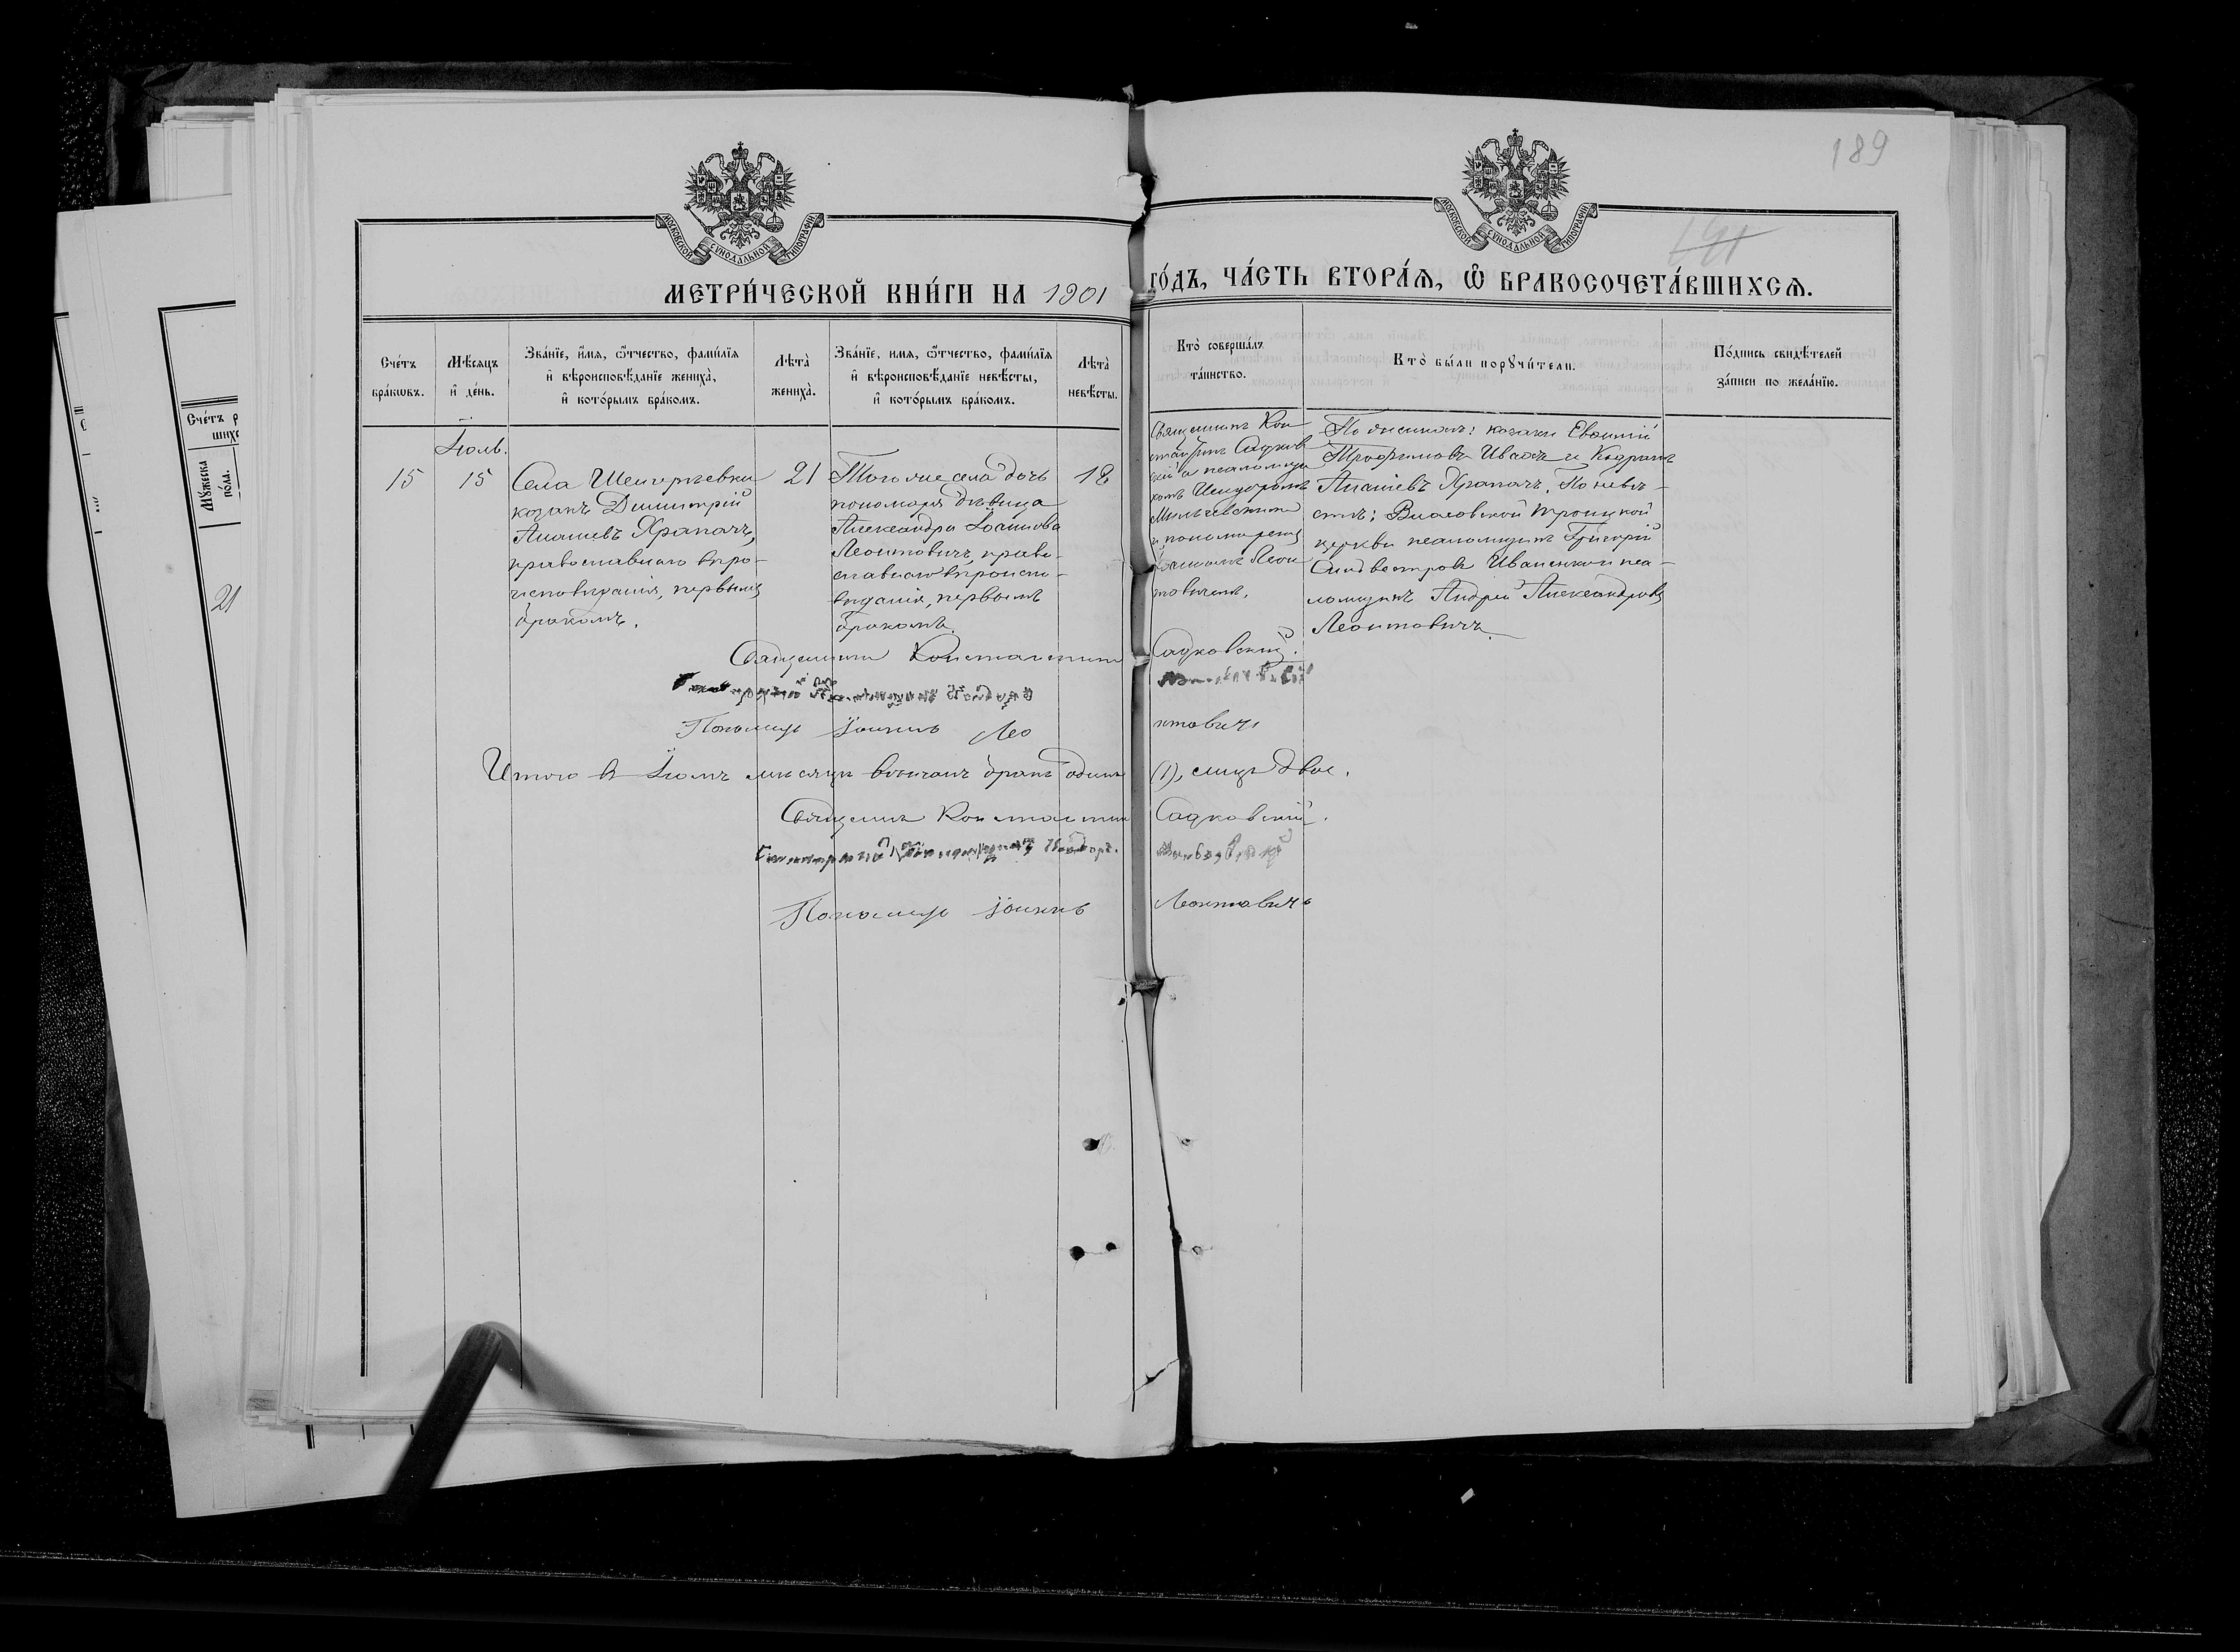 189
МОСКОВСКОЙ СУНОДАЛЬНОЙ ТИПОГРАФІИ
МОСКОВСКОЙ СУНОДАЛЬНОЙ ТИПОГРАФІИ
МЕТРИ́ЧЕСКОЙ КНИ́ГИ НА 1901 ГО́ДЪ, ЧА́СТЬ ВТОРА́Ѧ, Ѡ҆ БРАКОСОЧЕТА́ВШИХСѦ.
Сче́тъ
бра́кωвъ.
Мѣ́сѧцъ
и҆ де́нь.
Зва́нїе, и҆́мѧ, ѻ҆́тчество, фами́лїѧ
и҆ вѣроисповѣ́данїе жениха̀,
и҆ кото́рымъ бра́комъ.
Лѣ́та
жениха̀.
Зва́нїе, имѧ, ѻ҆́тчество, фами́лїѧ
и҆ вѣроисповѣ́данїе невѣ́сты,
и҆ кото́рымъ бра́комъ.
Лѣ́та
невѣ́сты.
Кто̀ соверша́лъ
та́инство.
Кто̀ бы́ли порꙋчи́тели.
По́дпись свидѣ́телей
за́писи по жела́нїю.
Сче́тъ р
Мꙋ́жеска
по́ла.
21
Іюль.
15
15
Села
козакъ Димитрій
Ананіевъ Храпачъ,
православнаго вѣро-
исповѣданія, первымъ
бракомъ.
21
Того же села дочь
пономаря дѣвица
Александра Іоаннова
Леонтовичъ, право-
славнаго вѣроиспо-
вѣданія, первымъ
бракомъ.
18
Священникъ Кон
стантинъ Садков
скій съ псаломщи
комъ
и пономаремъ
Іоанномъ Леон
товичемъ.
По женихѣ: козаки Евѳимій
Трофимовъ Ивахъ и
Ананіевъ Храпачъ. По невѣ-
стѣ: Власовской Троицкой
церкви псаломщикъ Григорій
Сильвестровъ Иваницкій пса-
ломщикъ Андрей Александровъ
Леонтовичъ.
Священникъ Константинъ Садковскій.
Пономарь Іоаннъ Леонтовичъ
Итого въ Іюлѣ мѣсяцѣ вѣнчанъ бракъ одинъ (1), лицъ двое.
Священникъ Константинъ Садковскій.
Пономарь Іоаннъ Леонтовичъ